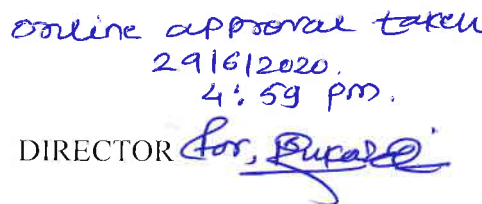 online approval taken
29/6/2020.
4:59 pm.
DIRECTOR for,